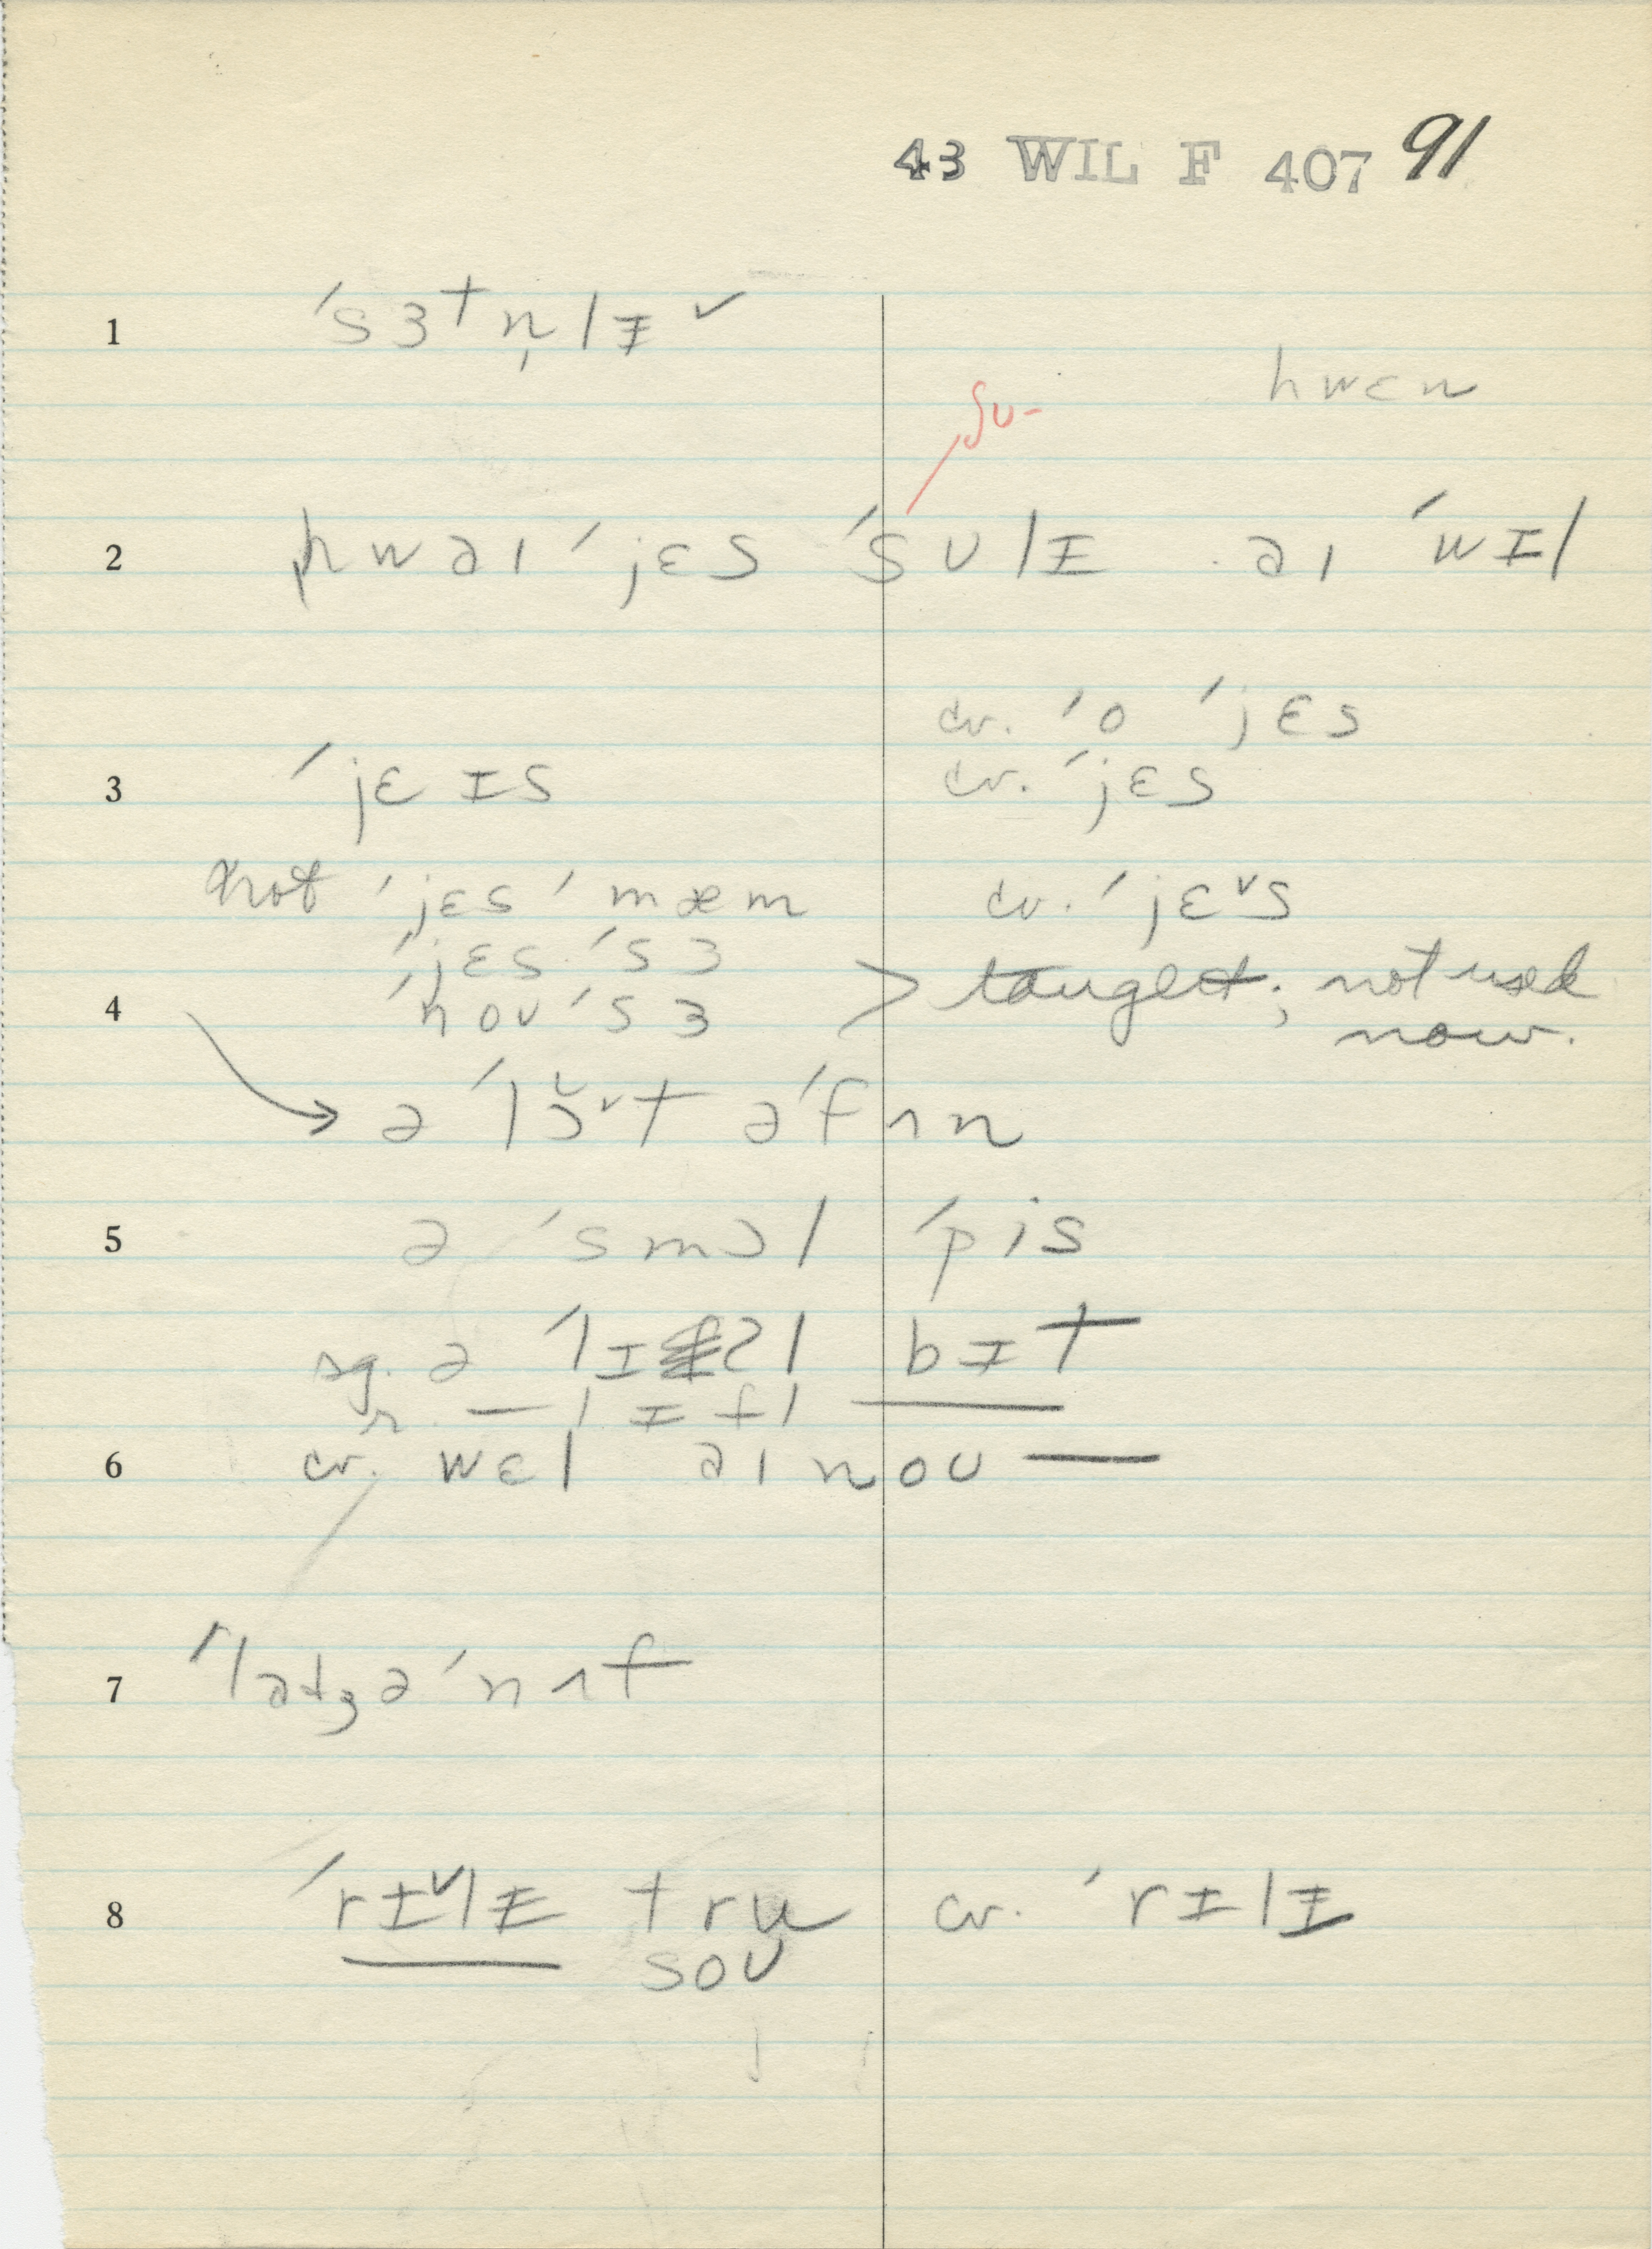 43 WIL F 407 91
1 ˈsɜtn̩lɪ̵ ˅
hwɛn
ʃʊ-
2 hwaɪ ˈjɛs ˈsʊlɪ aɪ ˈwɪl
cv. ˈo ˈjɛs
3 ˈjɛɪs cv. ˈjɛs
not ˈjɛs ˈmæm cv. ˈjɛ˅s
ˈjɛs ˈsɜ
4 ˈnoʊ ˈsɜ > taught; not used
now.
→ ə ˈlɔ̆˅t əˈfʌn
5 ə ˈsmɔl ˈpis
sg. ə ˈlɪʔl bɪt
r. — lɪtl —
6 cv. wɛl aɪ noʊ —
7 ˈladʒəˈnʌf
8 ˈrɪ˅lɪ̵ tru cv. ˈrɪlɪ̵
soʊ